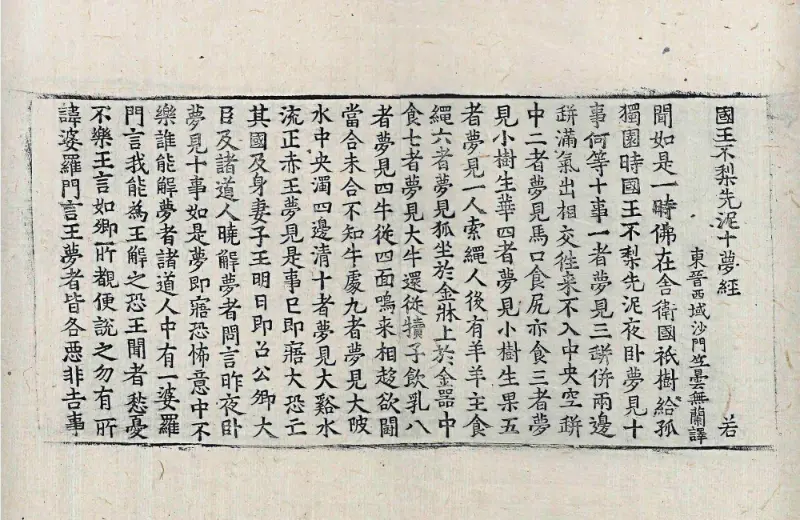 國王不梨先泥十夢經 若
東晉西域沙門竺曇無蘭譯
聞如是一時佛在舍衛國祇樹給孤
獨園時國王不梨先泥夜卧夢見十
事何等十事一者夢見三缾併兩邊
缾滿氣出相交往来不入中央空缾
中二者夢見馬口食尻亦食三者夢
見小樹生華四者夢見小樹生果五
者夢見一人索繩人後有羊羊主食
繩六者夢見狐坐於金牀上於金器中
食七者夢見大牛還從犢子飲乳八
者夢見四牛從四面鳴来相趍欲鬪
當合未合不知牛處九者夢見大陂
水中央濁四邊清十者夢見大谿水
流正赤王夢見是事已即寤大恐亡
其國及身妻子王明日即召公卿大
臣及諸道人曉解夢者問言昨夜卧
夢見十事如是夢即寤恐怖意中不
樂誰能解夢者諸道人中有一婆羅
門言我能為王解之恐王聞者愁憂
不樂王言如卿所覩便說之勿有所
諱婆羅門言王夢者皆各悪非吉事